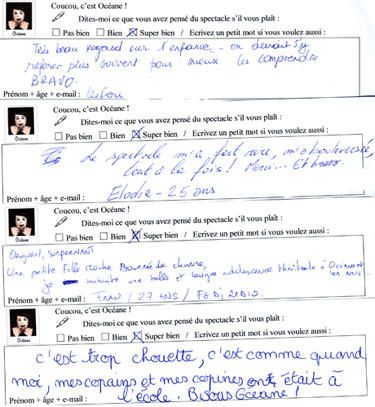 Coucou, c'est Océane !
Dites-moi ce que vous avez pensé du spectacle s'il vous plaît :
Pas bien Bien Super bien / Ecrivez un petit mot si vous voulez aussi :
Très beau regard sur l'enfance - on devrait s'y
référer plus souvent pour mieux les comprendre
BRAVO.
Prénom + âge + e-mail :
Océane
Coucou, c'est Océane !
Dites-moi ce que vous avez pensé du spectacle s'il vous plaît :
Pas bien Bien Super bien / Ecrivez un petit mot si vous voulez aussi :
Le spectacle m'a fait rire, m'a bouleversée,
tout à la fois ! Merci... Et bravo.
Prénom + âge + e-mail : Elodie - 25 ans
Océane
Coucou, c'est Océane !
Dites-moi ce que vous avez pensé du spectacle s'il vous plaît :
Pas bien Bien Super bien / Ecrivez un petit mot si vous voulez aussi :
Océane
Original, surprenant
Une petite Fille
je souhaite une belle et longue à Océane et
Prénom + âge + e-mail : FRAN / 27 ANS /
Coucou, c'est Océane !
Dites-moi ce que vous avez pensé du spectacle s'il vous plaît :
Pas bien Bien Super bien / Ecrivez un petit mot si vous voulez aussi :
Océane
c'est trop chouette, c'est comme quand
moi, mes copains et mes copines ont était à
l'école. Bisous Océane !
Prénom + âge + e-mail :